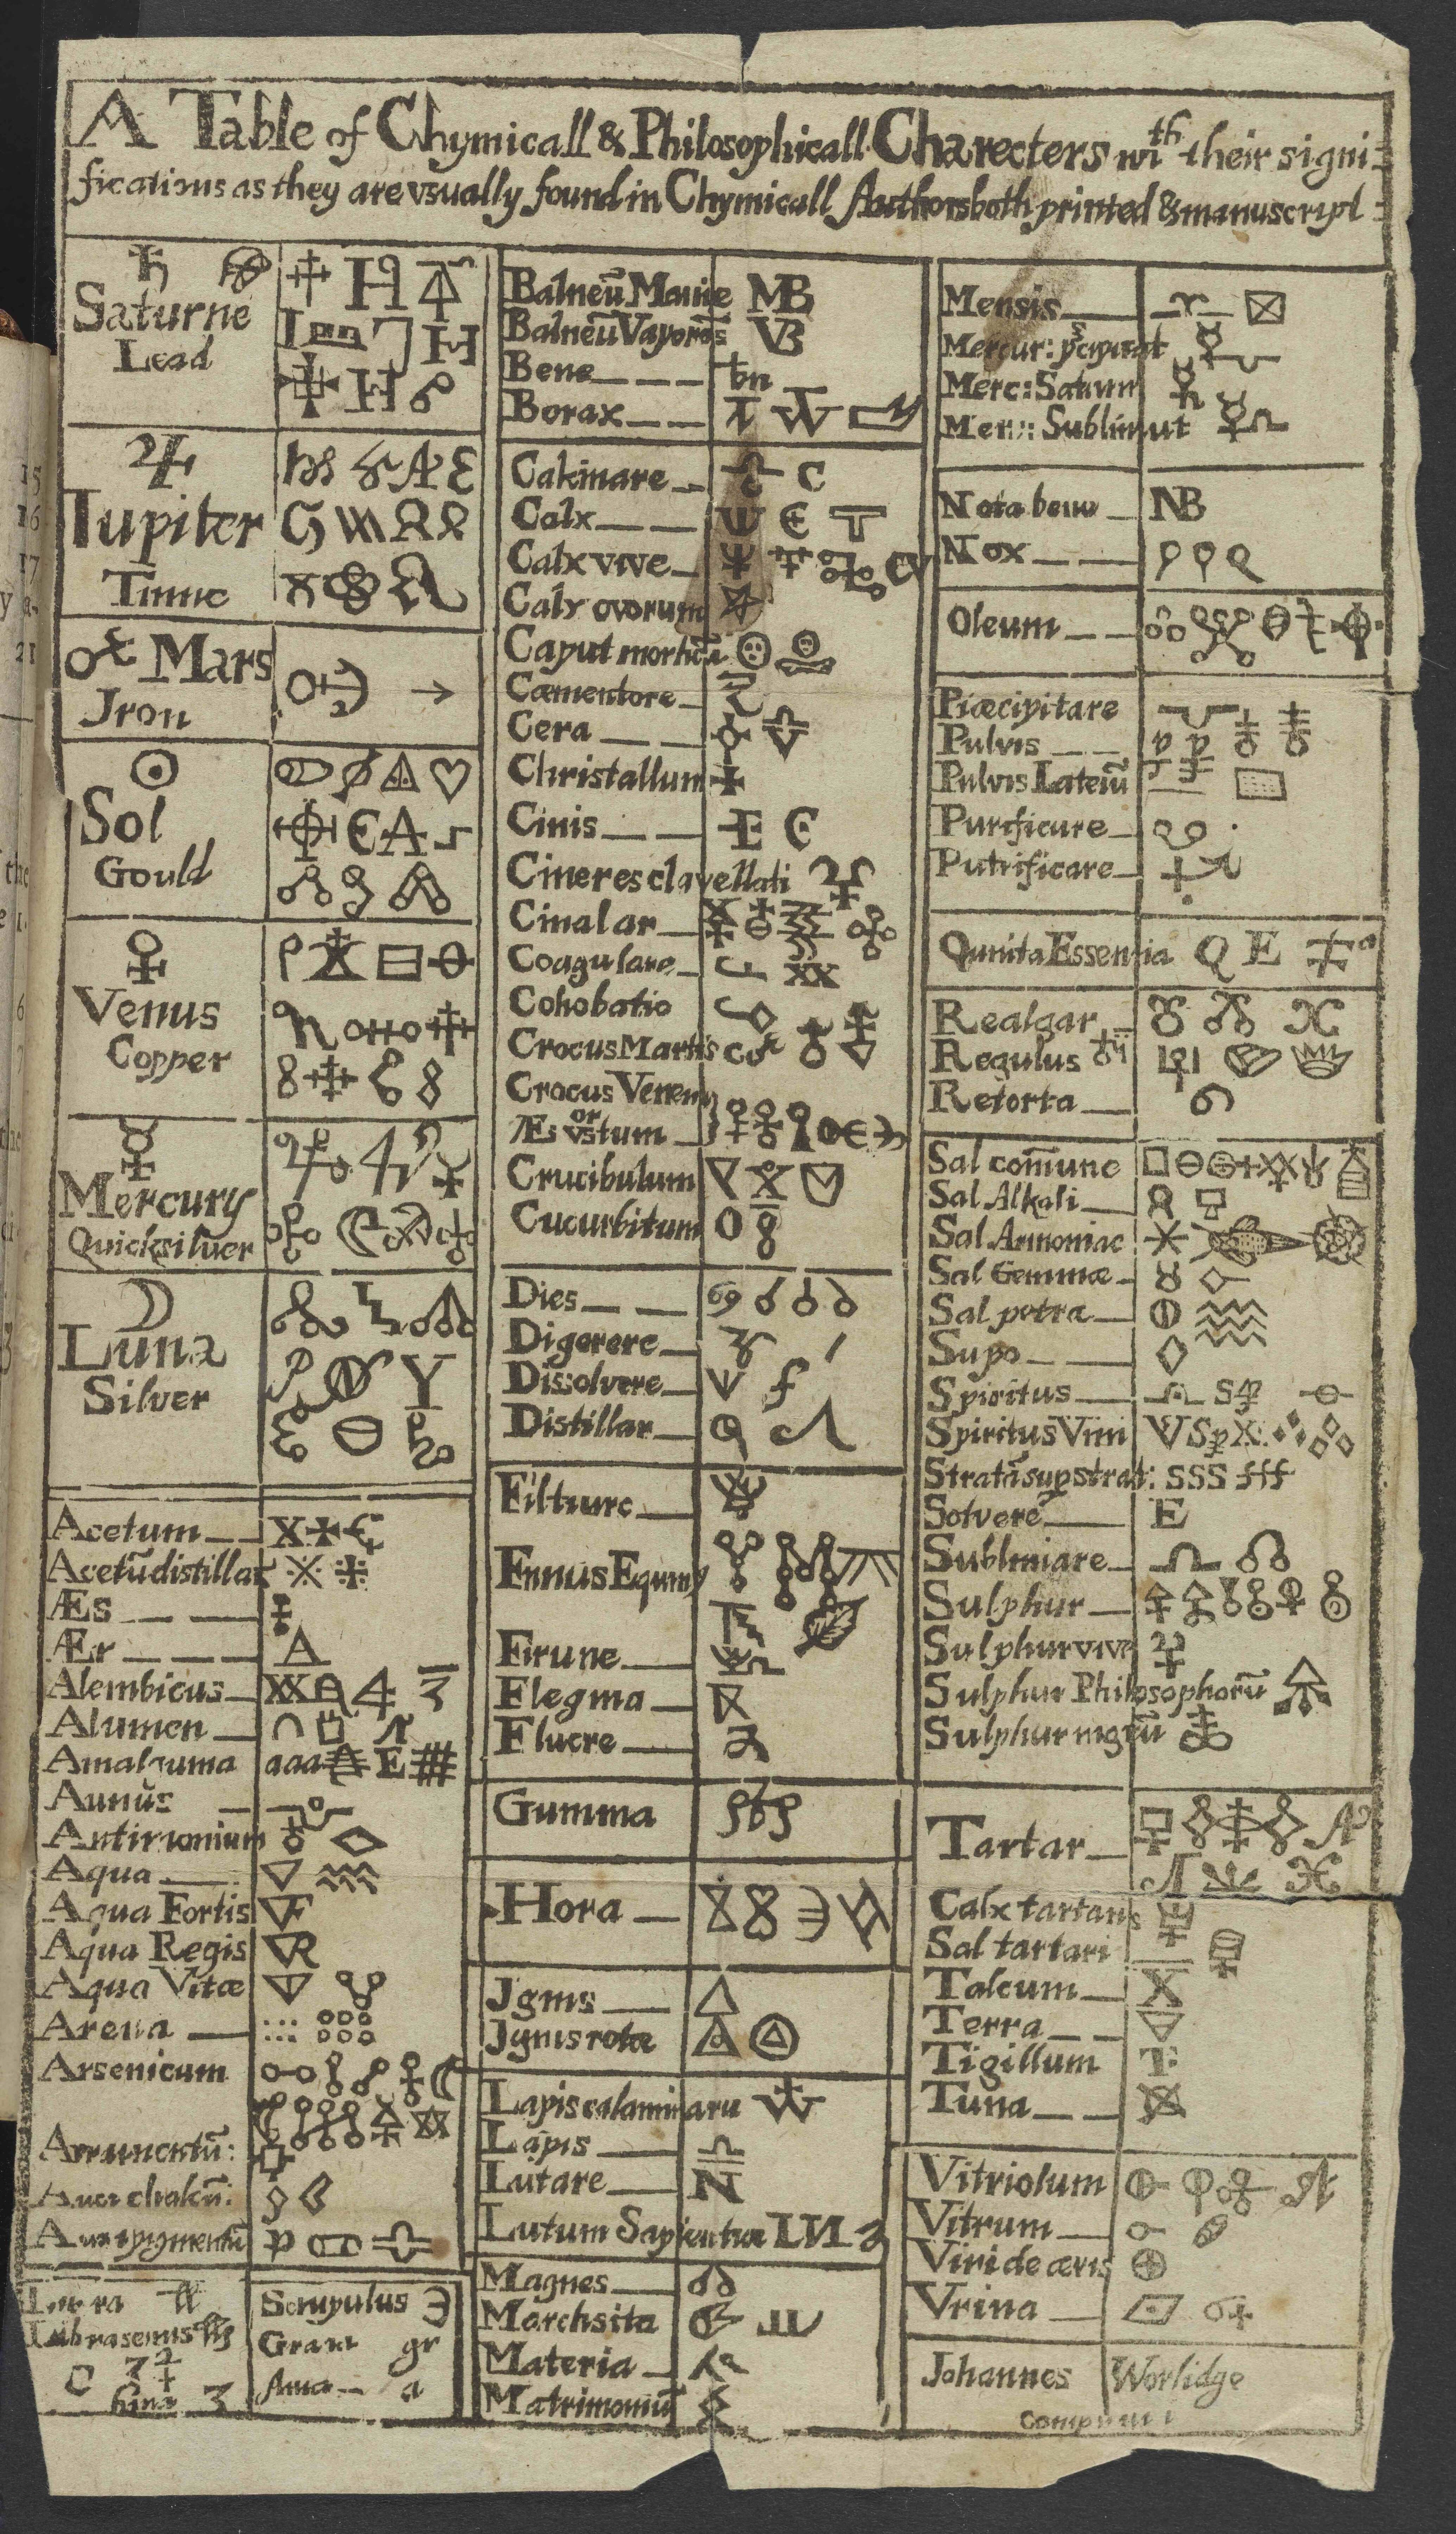 A Table of Chymicall & Philosophicall Charecters wth their signi=
fications as they are vsually found in Chymicall Authors both printed & manuscript =
Saturne
Lead
Iupiter
Tinne
Mars
Jron
Sol
Gould
Venus
Copper
Mercury
Quicksilver
Luna
Silver
Acetum
Acetū distillat
Æs
Ær
Alembicus
Alumen
Amalgama aaa E
Antimonium
Aqua
Aqua Fortis
Aqua Regis
Aqua Vitæ
Arena
Arsenicum
Libra semis
Scrupulus
Gran gr
Ana a
Balneū Marie MB
Balneū Vaporos VB
Bene bn
Borax
Calcinare C
Calx
Calx vive
Calx ovorum
Caput mortuū
Cæmentare
Cera
Christallum
Cinis E
Cineres clavellati
Cinabar
Coagulare
Cohobatio
Crocus Martis
Crocus Veneris
or
Æs vstum
Crucibulum
Cucurbitum
Dies
Digerere
Dissolvere
Distillar
Filtrare
Fimus Equiny
Firune
Flegma
Fluere
Gumma
Hora
Jgnis
Jgnis rotæ
Lapis calaminaru
Lapis
Lutare
Lutum Sapientiæ
Magnes
Marchsita
Materia
Matrimoniū
Mensis
Mercur: pcipitat
Merc: Saturn
Merc: Sublimat
Nota bene NB
Nox
Oleum
Præcipitare
Pulvis
Pulvis Lateriū
Purificare
Putrificare
Quinta Essentia Q E
Realgar
Regulus
Retorta
Sal com̄une
Sal Alkali
Sal Armoniac
Sal Gemmæ
Sal petra
Sapo
Spiritus
Spiritus Vini
Stratū sup strat: SSS fff
Solvere E
Sublimare
Sulphur
Sulphur vive
Sulphur Philosophorū
Sulphur nigrū
Tartar
Calx tartaris
Sal tartari
Talcum
Terra
Tigillum
Tuna
Vitriolum
Vitrum
Viride æris
Vrina
Johannes Worlidge